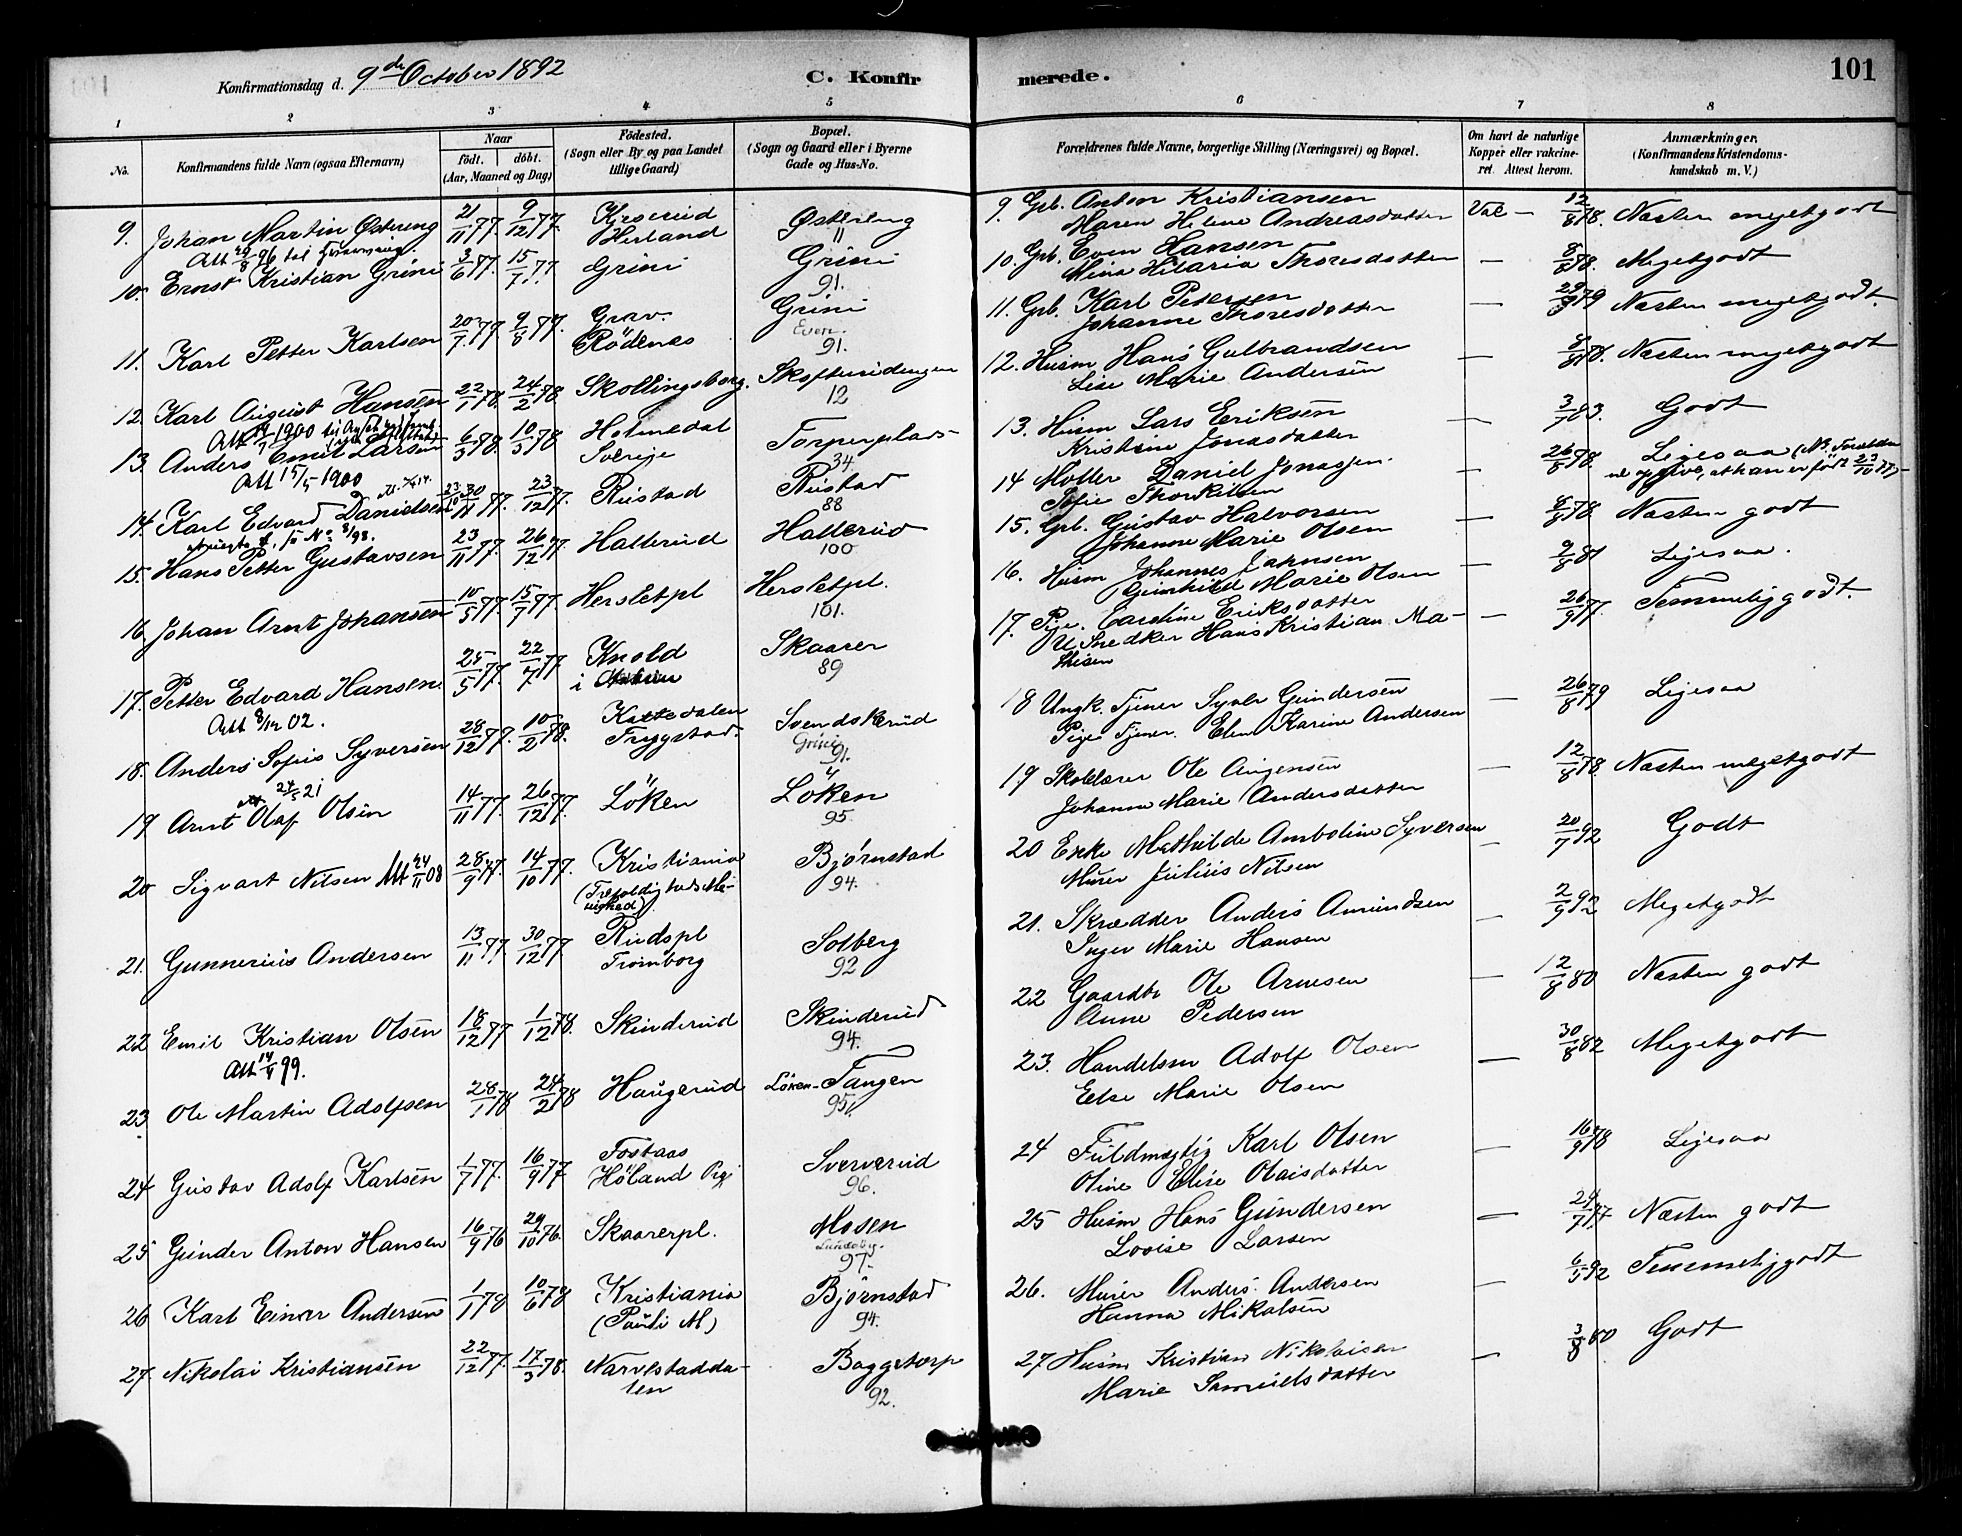 101
Konfirmationsdag d. 9de October 1892
C. Konfirmerede.
1 2 3 4 5 6 7 8
No.
Konfirmandens fulde Navn (ogsaa Efternavn)
Naar
födt. döbt.
(Aar, Maaned og Dag)
Födested.
(Sogn eller By og paa Landet
tillige Gaard)
Bopæl.
(Sogn og Gaard eller i Byerne
Gade og Hus-No.
Forældrenes fulde Navne, borgerlige Stilling (Næringsvei) og Bopæl.
Om havt de naturlige
Kopper eller vakcine-
ret. Attest herom.
Anmærkninger,
(Konfirmandens Kristendoms-
kundskab m. V.)
9. Johan Martin Østereng 21/11 77. 9/12 77. Kjoserud Herland Østereng 11
9. Grb. Anton Kristiansen Vac - 12/8 78. Næsten megetgodt
Maren Helene Andreasdatter
10. Ernst Kristian Grini 3/6 77. 15/7 77 Grini Grini 91.
10. Grb. Even Hansen — 8/8 78. Megetgodt
Mina Hilaria Thoresdatter
11. Karl Petter Karlsen 20/7 77. 9/8 77. Grav. Rödenes Grini Even. 91.
11. Grb. Karl Petersen — 29/9 79 Næsten megetgodt.
Johanne Thoresdatter
12. Karl August Hansen 22/1 78. 24/2 78 Skollingsborg. 12
12. Husm Hans Gulbrandsen — Næsten megetgodt
Lise Marie Andersen
13. Anders Emil Larsen 6/3 78. 10/3 78 Holmedal Sverige Torperplads- 34.
Att 15/5 1900
13. Husm Lars Eriksen — 3/7 83. Godt
Kristine Jonasdatter
14. Karl Edvard Danielsen 30/11 77. 23/12 77. Rustad Rustad 88
14 Möller Daniel Jonassen — 26/8 78. Ligesaa
Sofie Thorkilsen
15. Hans Petter Gustavsen 23/11 77. 26/12 77. Hallerud Hallerud 100
15. Grb. Gustav Halvorsen — 8/8 78. Næsten godt
Johanne Marie Olsen
16. Johan Arnt Johansen 10/5 77. 15/7 77. Hersletpl Hersletpl. 101.
16. Husm Johannes Jahnsen — 9/8 81 Ligesaa.
Gunhild Marie Olsen
17. Petter Edvard Hansen. 25/5 77. 22/7 77. Knold Skaarer 89
Att 8/12 02.
17. Pige. Caroline Eriksdatter — 26/9 77. Temmelig godt.
U Snedker Hans Kristian Ma-
thisen
18. Anders Sofus Syversen 28/12 77. 10/2 78. Kattedalen Trygstad. Svendskerud Grini 91.
18 Ungk. Tjener Syver Gundersen — 26/8 79 Ligesaa
Pige Tjener. Elen Karine Andersen
19 Arnt Olaf Olsen 14/11 77. 26/12 77. Löken Löken 95.
19 Skolelærer Ole Augensen — 12/8 78. Næsten megetgodt
Johanne Marie Andersdatter
20 Sigvart Nilsen Att 24/11 08 28/9 77. 14/10 77. Kristiania (Trefoldigheds Me-
nighed) Bjørnstad 94.
20 Enke Mathilde Amboline Syversen - 20/7 92 Godt
Murer Julius Nilsen
21. Gunnerius Andersen 13/11 77. 30/12 77. Rudspl Trømborg Solberg 92
21. Skrædder Anders Amundsen — 2/9 92 Megetgodt
Inger Marie Hansen
22 Emil Kristian Olsen 18/12 77 1/12 78. Skinderud Skinderud 94.
Att 14/4 99.
22 Gaardbr Ole Arnesen — 12/8 80 Næsten godt
Anne Pedersen
23. Ole Martin Adolfsen 28/1 78 24/2 78 Haugerud Löken-Tangen 95.
23. Handelsm Adolf Olsen — 30/8 82 Megetgodt
Else Marie Olsen
24 Gustav Adolf Karlsen 1/7 77. 16/9 77 Fostaas Höland Pgj Sververud 96.
24 Fuldmægtig Karl Olsen — 16/9 78 Ligesaa
Oline Elise Olaisdatter
25 Gunder Anton Hansen 16/9 76 29/10 76. Skaarerpl. Mosen Lundeby. 97.
25 Husm Hans Gundersen — 24/7 77 Næsten godt
Lovise Larsen
26 Karl Einar Andersen 1/1 78 10/6 78 Kristiania (Pauli M) Bjørnstad 94.
26. Murer Anders Andersen — 6/5 92 Temmeliggodt
Hanna Mikalsen
27. Nikolai Kristiansen 22/12 77. 17/3 78. Narvestadda-
len Baggetorp 92.
27 Husm Kristian Nikolaisen — 3/8 80 Godt
Marie Samuelsdatter